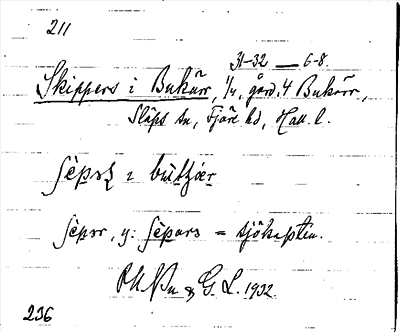 211
31-32 — 6-8.
Skippers i Bukärr, 1/4, gård. 4 Bukärr,
Släps sn, Fjäre hd, Hall. l.
ʃèpəʂ ɪ
ʃèpər, y: ʃèpars = sjökapten.
& G. L. 1932.
236